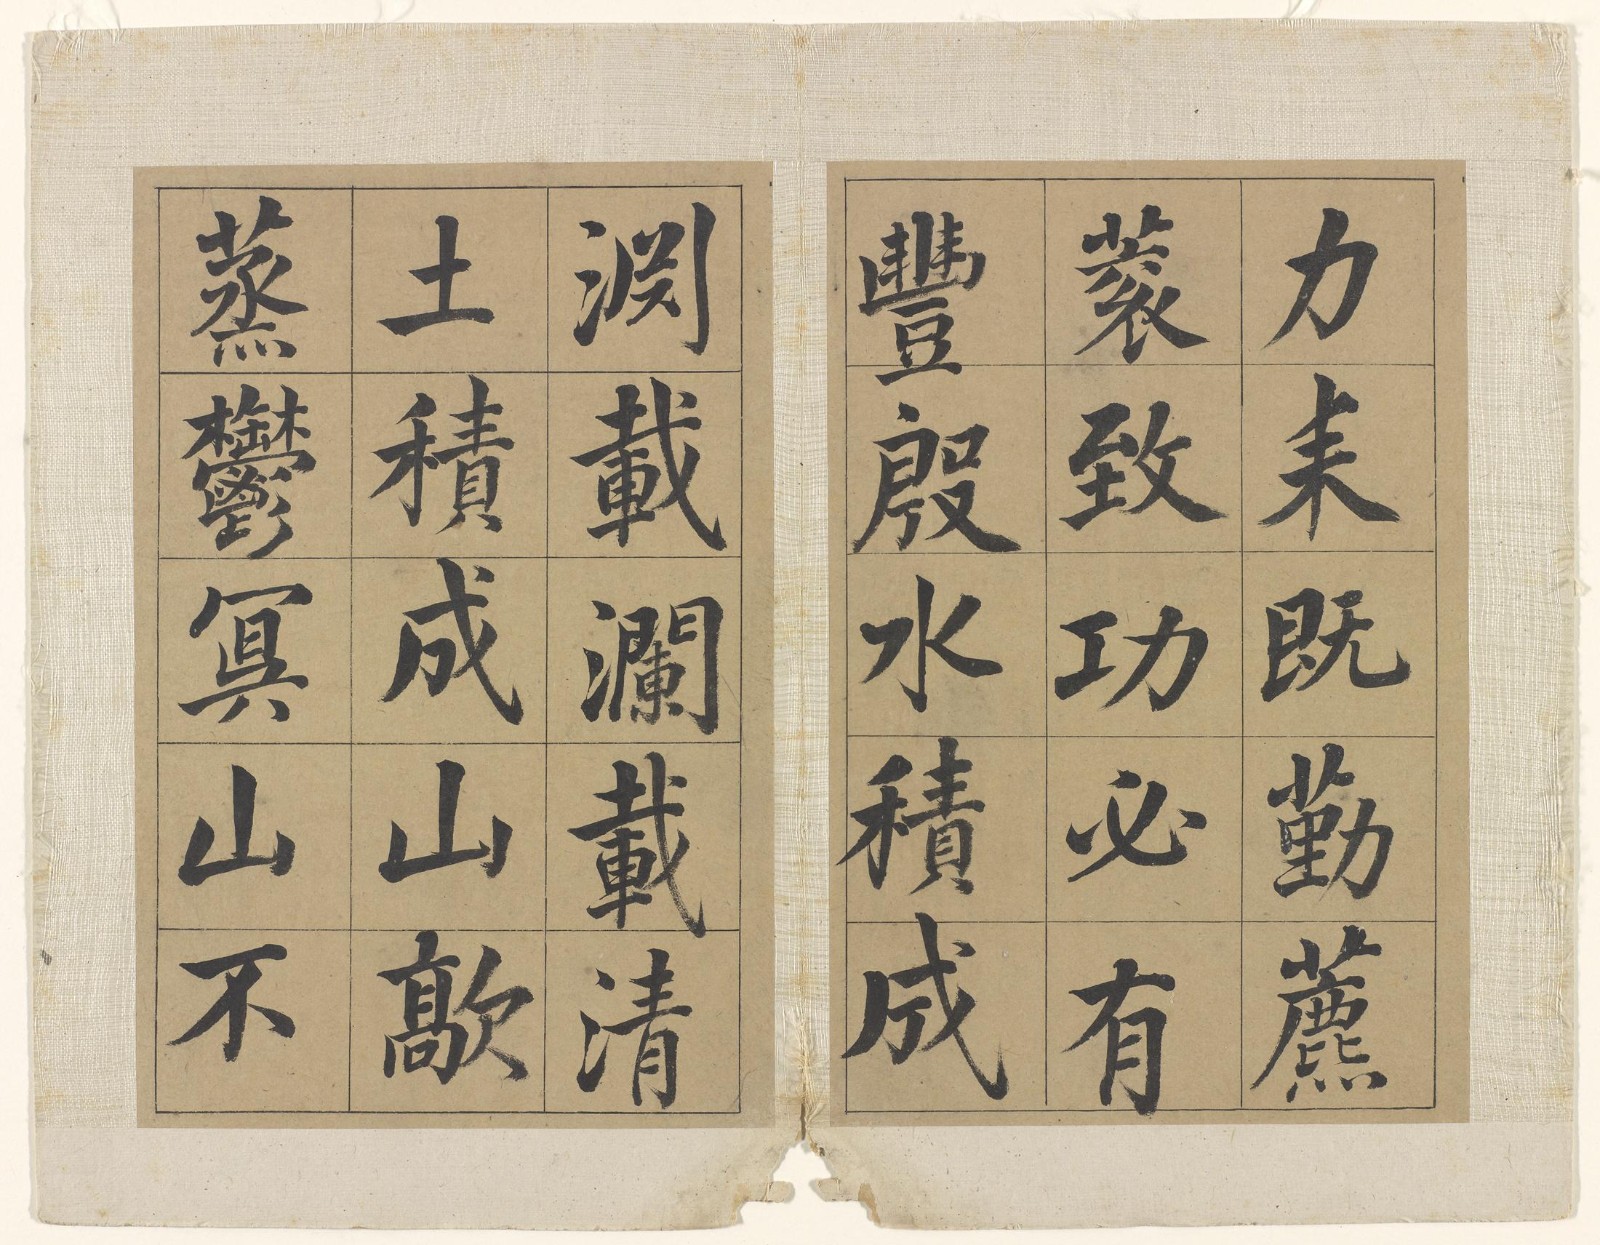 力耒既勤藨
蓘致功必有
豐殷水積成
淵載瀾載清
土積成山歊
蒸鬱冥山不